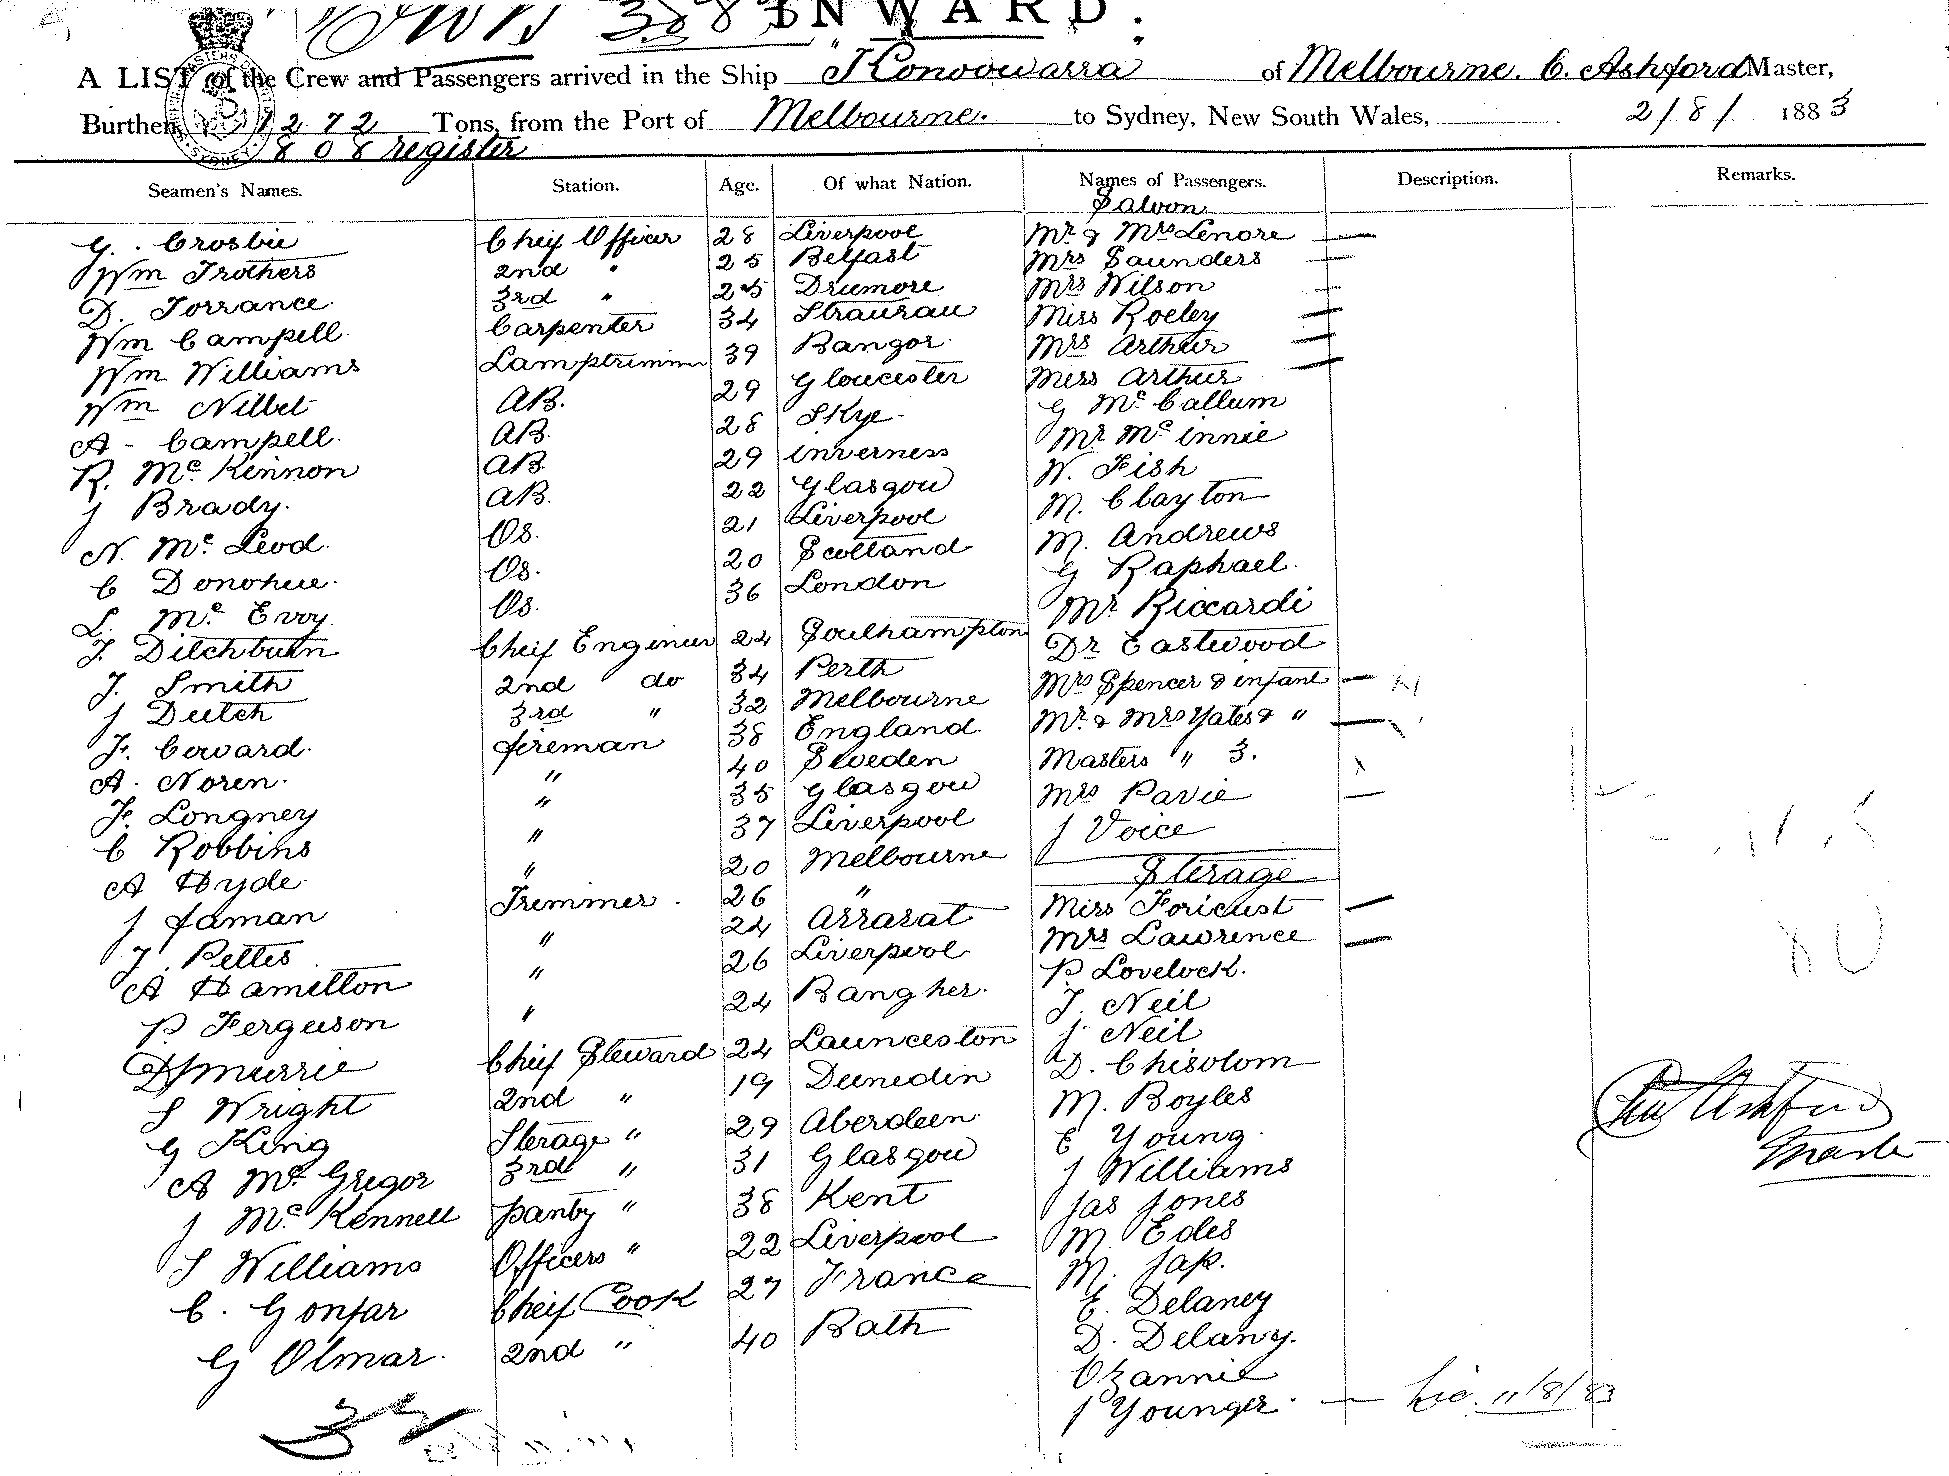 INWARD.
A LIST of the Crew and Passengers arrived in the Ship Konoowarra of Melbourne. C. Ashford Master,
Burthen 1272 Tons, from the Port of Melbourne. to Sydney, New South Wales, 2/8/ 1883
808 register
Seamen's Names. Station. Age. Of what Nation. Names of Passengers. Description. Remarks.
Saloon
G. Crosbie Cheif Officer 28 Liverpool Mr & Mrs Lenore —
Wm Trothers 2nd " 25 Belfast Mrs Saunders —
D. Torrance 3rd " 25 Drumore Mrs Wilson —
Wm Campell Carpenter 34 Stranrau Miss Roeley —
Wm Williams Lamptrimm 39 Bangor. Mrs Arthur —
Wm Nilbet AB. 29 Gloucester Miss Arthur —
A. Campell. AB. 28 Skye G McCallum
R. McKennon AB 29 inverness Mr McInnie
J Brady. AB. 22 Glasgow W. Fish
N. McLeod. Os. 21 Liverpool M. Clayton
C Donohue. Os. 20 Scotland M. Andrews
L. McEvoy. Os. 36 London G Raphael.
Mr Riccardi
J. Ditchburn Cheif Engineer 24 Southampton Dr Eastwood
J. Smith 2nd do 34 Perth Mrs Spencer & infant —
J Dutch 3rd " 32 Melbourne Mr & Mrs Yates & " —
F. Coward. fireman 38 England Masters " 3.
A. Noren. " 40 Sweden Mrs Pavie —
F. Longney " 35 Glasgow J Voice
C Robbins " 37 Liverpool
A Hyde. " 20 Melbourne Sterage
J Jaman Tremmer. 26 " Miss Foricust —
T. Pettis " 24 Arrarat Mrs Lawrence —
A Hamilton " 26 Liverpool P. Lovelock.
P. Ferguson " 24 Bangher. T. Neil
J. Neil
Murrie Cheif Steward 24 Launceston D. Chisolom
S Wright 2nd " 19 Dunedin M. Boyles
G King Sterage " 29 Aberdeen E Young.
A McGregor 3rd " 31 Glasgow J Williams
J McKennell panty " 38 Kent Jas Jones
S Williams Officers " 22 Liverpool M. Edes
C. Gonfar Cheif Cook 27 France M. Jap.
G Olmar. 2nd " 40 Bath E. Delaney
D. Delany.
Ozannie
J Younger. — 11/8/83
Ashford
Master